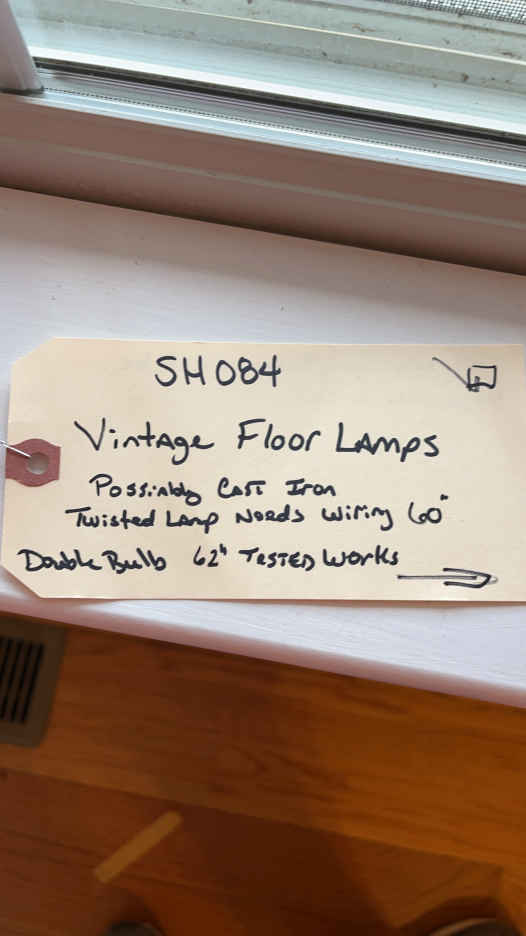 SH084
Vintage Floor Lamps
Possinbly Cast Iron
Twisted Lamp Needs Wiring 60"
Double Bulb 62" TESTED Works